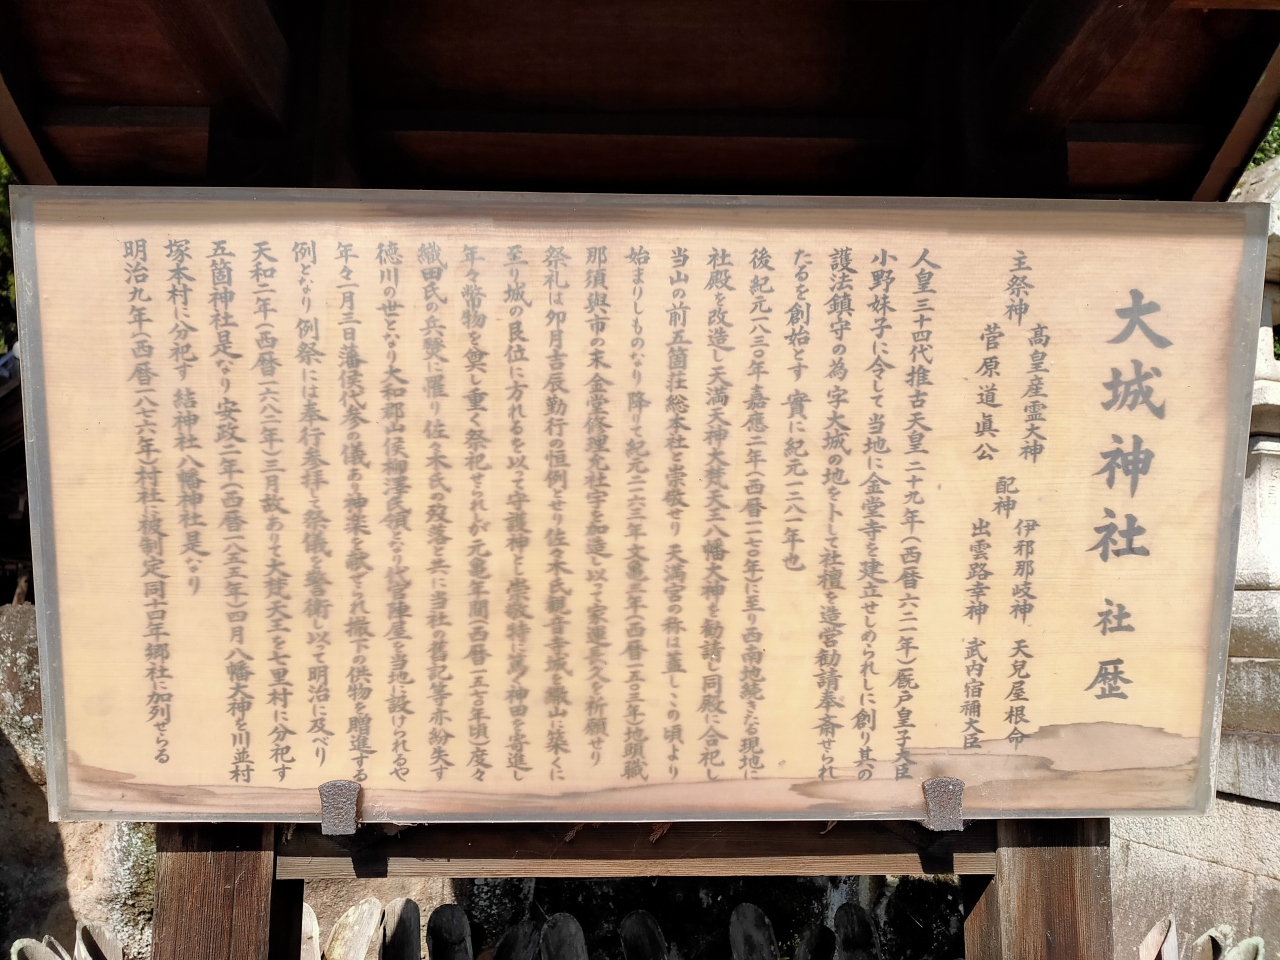 大城神社 社歴
主祭神
高皇産霊大神
菅原道眞公
配神
伊邪那岐神 天兒屋根命
出雲路幸神 武内宿禰大臣
人皇三十四代推古天皇二十九年(西暦六二一年)厩戸皇子大臣
小野妹子に令して当地に金堂寺を建立せしめられしに創り其の
護法鎮守の為字大城の地を卜して社檀を造営勧請奉斎せられ
たるを創始とす 實に紀元一二八一年也
後紀元一八三〇年嘉應二年(西暦一一七〇年)に至り西南地続きたる現地に
社殿を改造し天満天神大梵天王八幡大神を勧請し同殿に合祀し
当山の前五箇荘総本社と崇敬せり 天満宮の称は蓋しこの頃より
始まりしものなり 降りて紀元二一六三年文亀三年(西暦一五〇三年)地頭職
那須與市の末金堂修理亮社宇を加造し以って家運長久を祈願せり
祭礼は卯月吉辰勤行の恒例とせり佐々木氏観音寺城を繖山に築くに
至り城の艮位に方れるを以て守護神と崇敬特に篤く神田を寄進し
年々幣物を奠し重く祭祀せられしが元亀年間(西暦一五七〇年頃)度々
織田氏の兵燹に罹り佐々木氏の歿落と共に当社の舊記等亦紛失す
徳川の世となり大和郡山侯柳澤氏領となり代官陣屋を当地に設けられるや
年々一月三日藩侯代参の儀あり神楽を献ぜられ撤下の供物を贈進する
例となり 例祭には奉行参拝して祭儀を警衛し以って明治に及べり
天和二年(西暦一六八二年)三月故ありて大梵天王を七里村に分祀す
五箇神社是なり 安政二年(西暦一八五五年)四月八幡大神を川並村
塚本村に分祀す 結神社八幡神社是なり
明治九年(西暦一八七六年)村社に被制定同十四年郷社に加列せらる